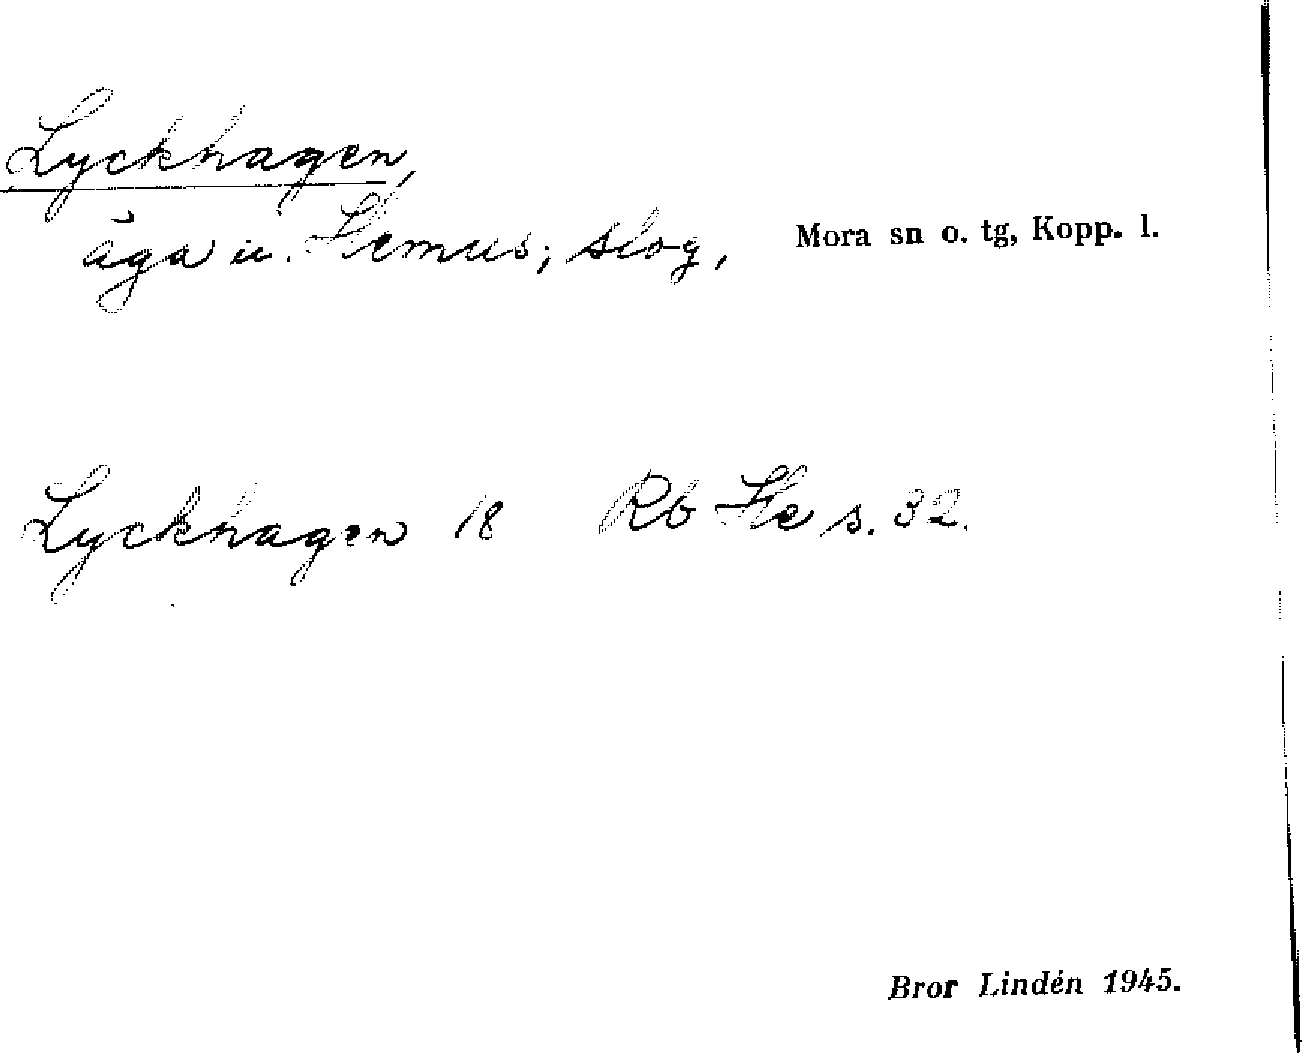 Lyckhagen,
äga u. Hemus; slog, Mora sn o. tg, Kopp. l.
Lyckhagen 18 Rb He s. 32.
Bror Lindén 1945.